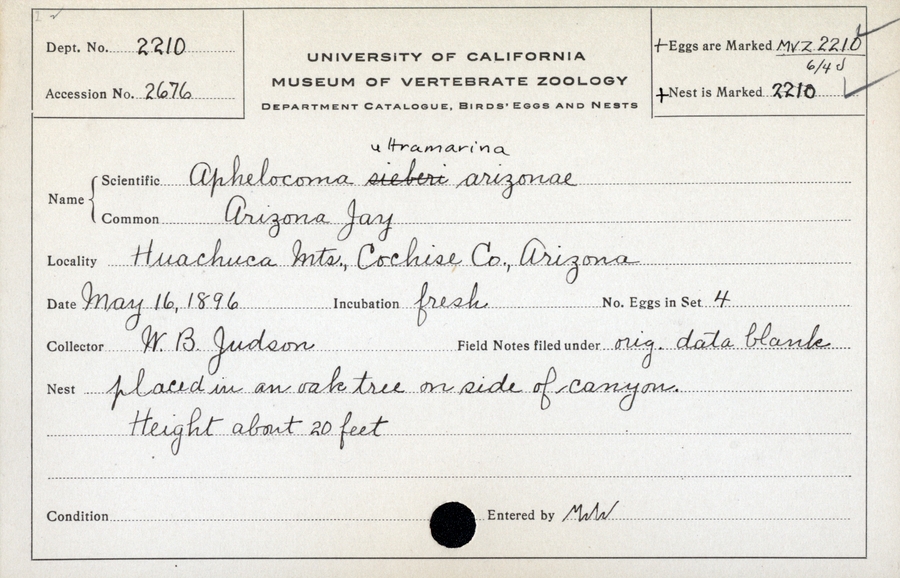 Dept. No. 2210
Accession No. 2676
UNIVERSITY OF CALIFORNIA
MUSEUM OF VERTEBRATE ZOOLOGY
DEPARTMENT CATALOGUE, BIRDS' EGGS AND NESTS
+Eggs are Marked MVZ 2210
6/4
+Nest is Marked 2210
ultramarina
Name
Scientific Aphelocoma sieberi arizonae
Common Arizona Jay
Locality Huachuca Mts., Cochise Co., Arizona
Date May 16, 1896 Incubation fresh No. Eggs in Set 4
Collector W. B. Judson Field Notes filed under orig. data blank
Nest placed in an oak tree on side of canyon.
Height about 20 feet
Condition Entered by